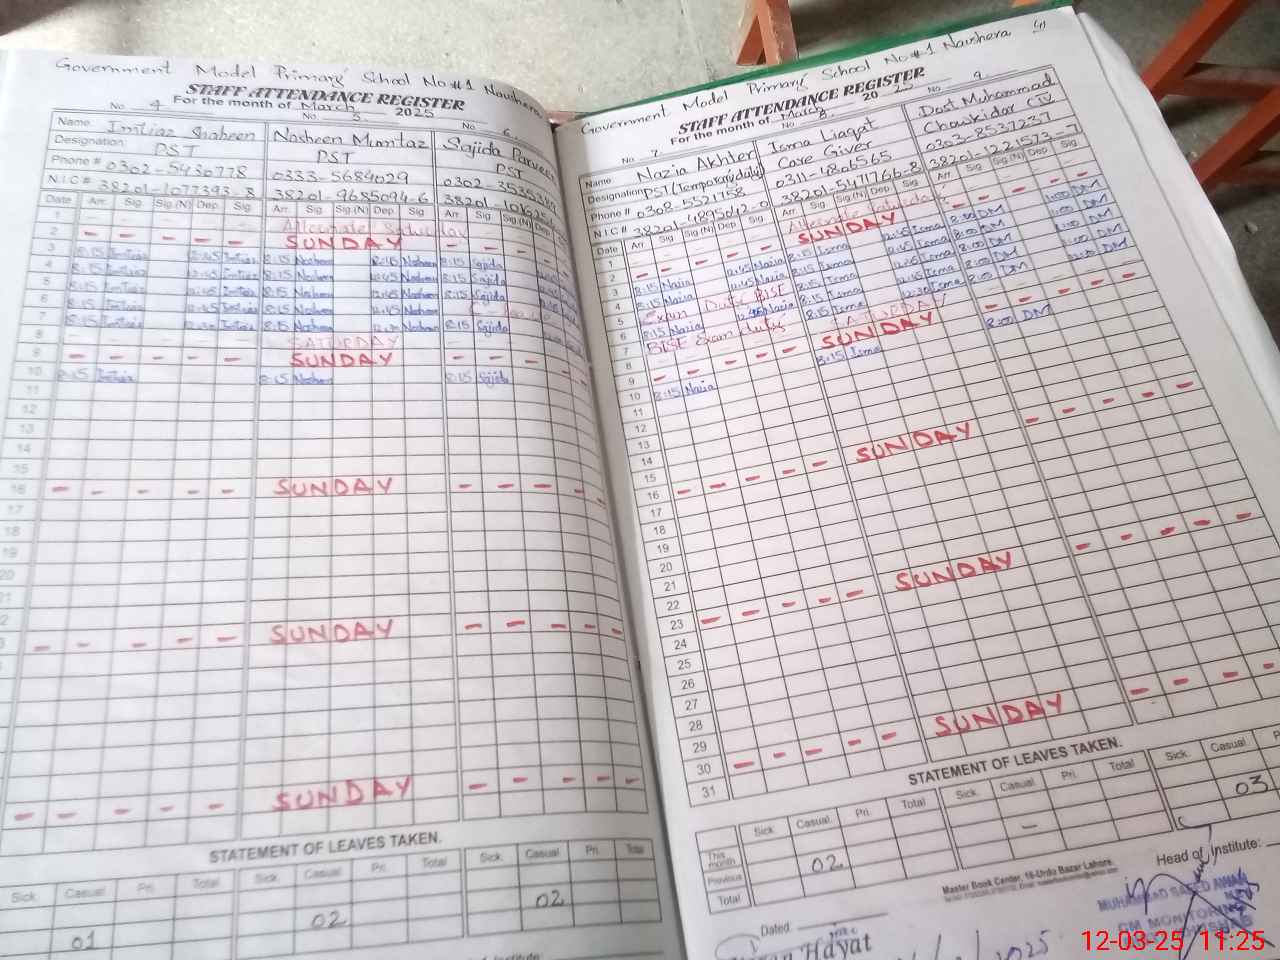 Government Model Primary School No#1 Naushera
STAFF ATTENDANCE REGISTER
For the month of March 2025
No. 4 No. 5 No. 6
Name. Imtiaz Shaheen Nasheen Mumtaz Sajida Parveen
Designation: PST PST PST
Phone # 0302-5430778 0333-5684029
N.I.C# 38201-1077393-8 38201-9685094-6
Date Arr. Sig. Sig.(N) Dep. Sig. Arr. Sig. Sig.(N) Dep. Sig. Arr. Sig. Sig.(N) Dep
1
2 SUNDAY
3 8:15 Imtiaz 12:45 Imtiaz 8:15 Nasheen 12:45 Nasheen 8:15 Sajida
4 8:15 Imtiaz 12:45 Imtiaz 8:15 Nasheen 12:45 Nasheen 8:15 Sajida
5 8:15 Imtiaz 12:45 Imtiaz 8:15 Nasheen 12:45 Nasheen 8:15 Sajida
6 8:15 Imtiaz 12:45 Imtiaz 8:15 Nasheen 12:45 Nasheen
7 8:15 Imtiaz Imtiaz 8:15 Nasheen Nasheen 8:15 Sajida
8 SATURDAY
9 SUNDAY
10 8:15 Imtiaz 8:15 Nasheen 8:15 Sajida
11
12
13
14
15
16 SUNDAY
17
18
19
20
SUNDAY
SUNDAY
STATEMENT OF LEAVES TAKEN.
Sick. Casual. Pri. Total Sick. Casual. Pri. Total Sick. Casual. Pri. Total
01 02 02
Government Model Primary School No#1 Naushera
STAFF ATTENDANCE REGISTER
For the month of March 2025
No. 7 No. No. 9
Name Nazia Akhter Isma Liaqat Dost Muhammad
Designation: PST(Temporary duty) Care Giver Chowkidar CIV
Phone # 0308-5521758 0311-4806565 0303-8537237
N.I.C# 38201-4895042-0 38201-5471766-8 38201-1221573-7
Date Arr. Sig. Sig.(N) Dep. Sig. Arr. Sig. Sig.(N) Dep. Sig. Arr. Sig. Sig.(N) Dep. Sig.
1
2 SUNDAY
3 8:15 Nazia 12:45 Nazia 8:15 Isma 12:45 Isma 8:00 DM
4 8:15 Nazia 12:45 Nazia 8:15 Isma 12:45 Isma 8:00 DM
5 Exam Duty BISE 8:15 Isma 12:45 Isma 8:00 DM
6 8:15 Nazia 12:45 Nazia 8:15 Isma 12:45 Isma 8:00 DM
7 BISE Exam duty 8:15 Isma 12:30 Isma 8:00 DM
8 SATURDAY
9 SUNDAY
10 8:15 Nazia 8:15 Isma 8:00 DM
11
12
13
14
15
16 SUNDAY
17
18
19
20
21
22
23 SUNDAY
24
25
26
27
28
29
30 SUNDAY
31
STATEMENT OF LEAVES TAKEN.
Sick. Casual. Pri. Total Sick. Casual. Pri. Total Sick. Casual.
This month 02 - 03
Previous
Total
Master Book Center, 16-Urdu Bazar Lahore.
Head of Institute:
Dated:
Hayat
2025
MUHAMMAD SAEED AWAN
CM MONITORING
KHUSHAB
12-03-25 11:25